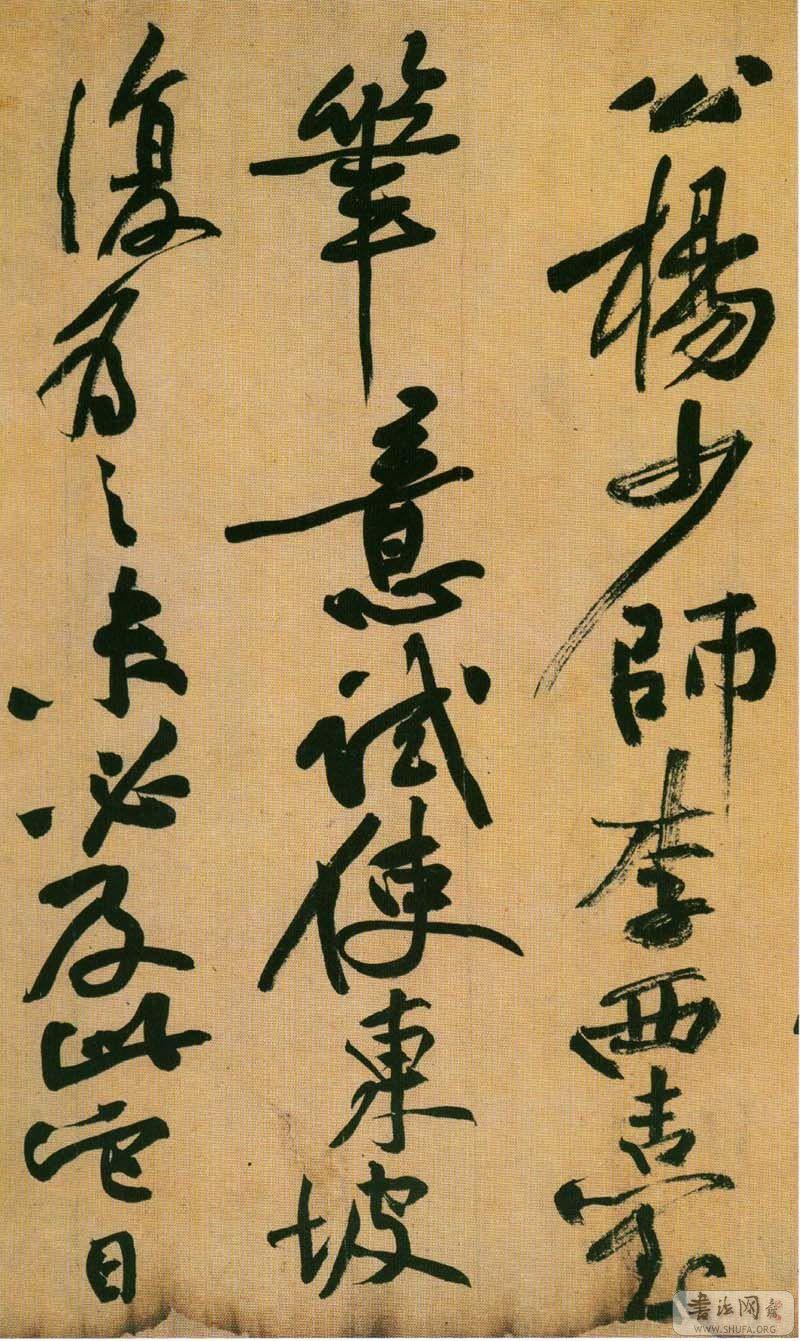 公楊少師李西臺
筆意試使東坡
復為之未必及此它日
書法网
WWW.SHUFA.ORG